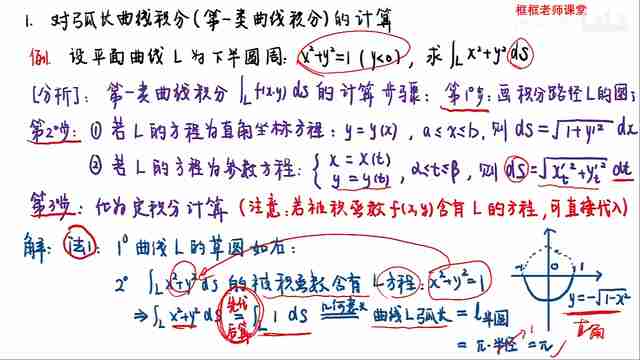 框框老师课堂
1. 对弧长曲线积分(第一类曲线积分)的计算
例. 设平面曲线 L 为下半圆周: x²+y²=1 (y<0), 求 ∫_L x²+y² ds
[分析]: 第一类曲线积分 ∫_L f(x,y) ds 的计算步骤: 第1°步: 画积分路径L的图;
第2°步: ① 若 L 的方程为直角坐标方程: y=y(x), a≤x≤b, 则 ds=√(1+y'²) dx
② 若 L 的方程为参数方程: { x=x(t) y=y(t), α≤t≤β, 则 ds=√(x_t'²+y_t'²) dt
第3°步: 化为定积分计算 (注意: 若被积函数 f(x,y) 含有 L 的方程, 可直接代入)
解: 法1: 1° 曲线 L 的草图如右:
2° ∫_L x²+y² ds 的被积函数含有 L 方程: x²+y²=1
⇒ ∫_L x²+y² ds = ∫_L 1 ds 几何意义 曲线L弧长 = l半圆
先代后算
= π·半径 = π
-1 0 1
y=-√(1-x²)
直角